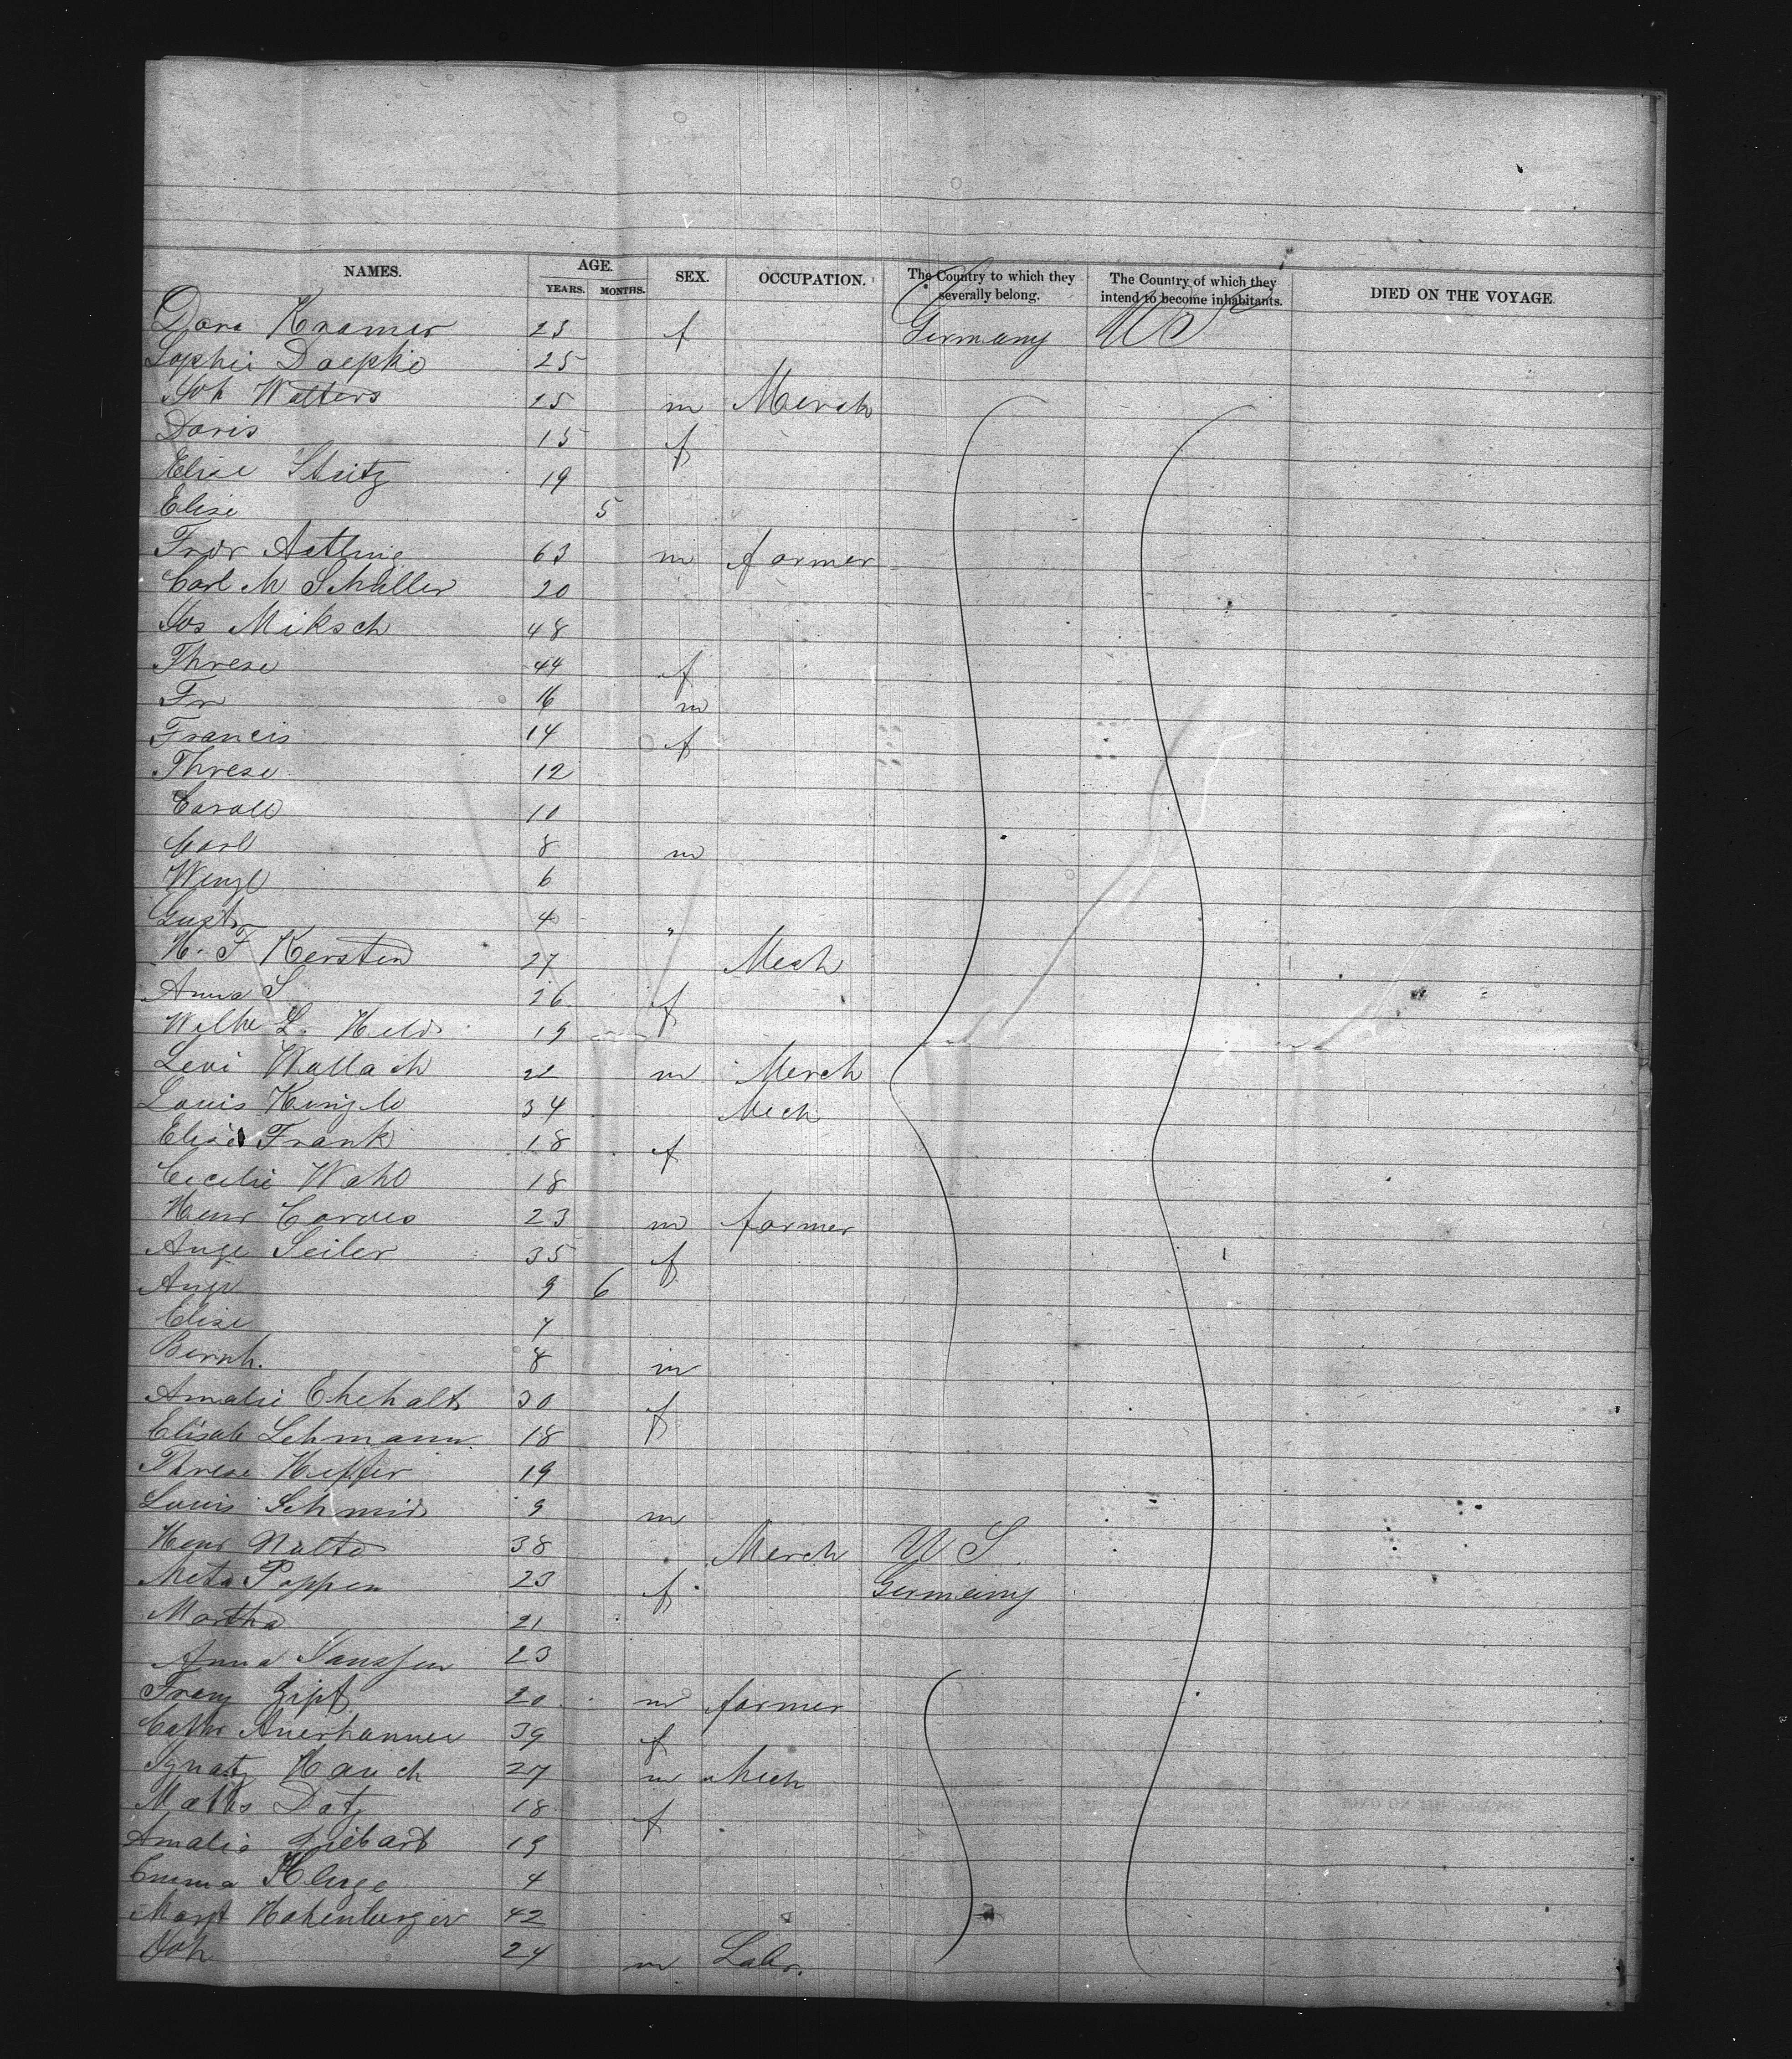 NAMES. AGE. SEX. OCCUPATION. The Country to which they severally belong. The Country of which they intend to become inhabitants. DIED ON THE VOYAGE.
YEARS. MONTHS.
Dora Kramer 23 f Germany US
Sophie Doepke 25
Joh Walters 25 m Merch
Doris 15 f
Elise 19
Elise 5
Fridr 63 m farmer
Carl M Schuller 20
Jos Miksch 48
Threse 44 f
Fr 16 m
Francis 14 f
Threse 12
Carole 10
Carl 8 m
Wenzl 6
Gust 4 "
H. F Kersten 27 Mech
Anna S 26 f
Wilhe L. Held 19
Levi Wallach 22 m Merch
Louis Kunzle 34 Mech
Elise Frank 18 f
Cecilie Wahl 18
Henr Cordes 23 m farmer
Auge Seiler 35 f
Auge 9 6
Elise 7
Bernh. 8 m
Amalie Ehehalt 30 f
Elisab Lehmann 18
Threse 19
Louis Schmid 9 m
Henr Nolte 38 Merch U S.
Meta Poppen 23 f Germany
Martha 21
Anna Janssen 23
Franz Zipf 20 m farmer
Cathr 39 f
Ignatz Hauch 27 m Mech
Dotz 18 f
Amalie 19
Emma Kluge 4
Margt Hohenberger 42
Joh 24 m Labr.